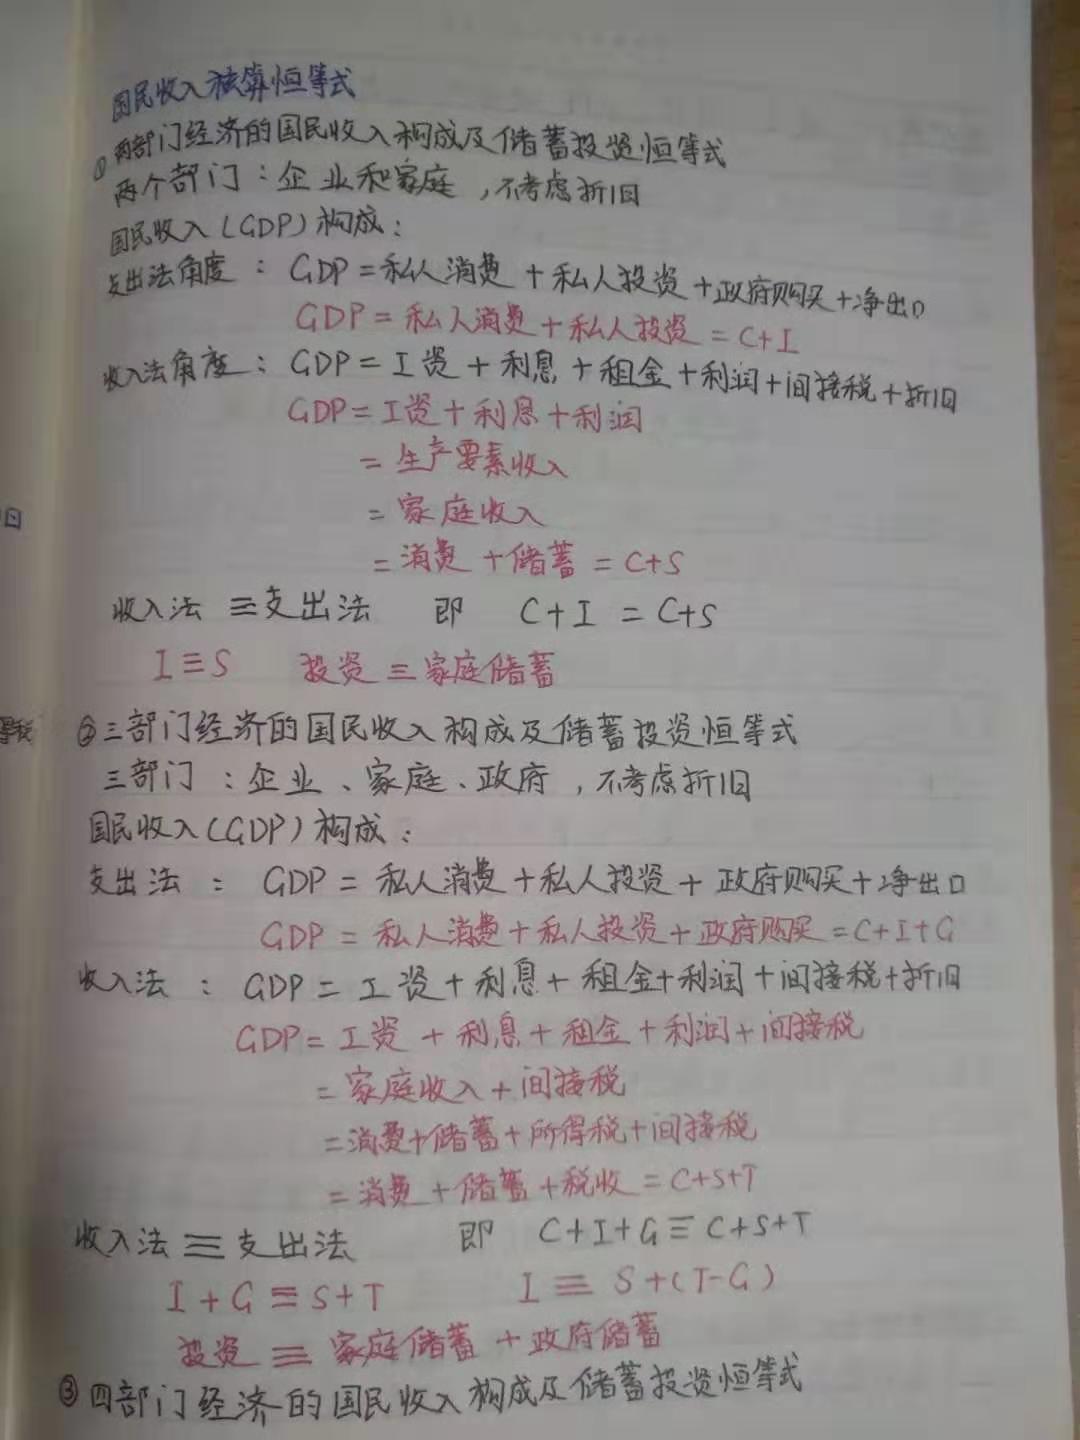 国民收入核算恒等式
①两部门经济的国民收入构成及储蓄投资恒等式
两个部门：企业和家庭，不考虑折旧
国民收入（GDP）构成：
支出法角度：GDP=私人消费+私人投资+政府购买+净出口
GDP=私人消费+私人投资=C+I
收入法角度：GDP=工资+利息+租金+利润+间接税+折旧
GDP=工资+利息+利润
=生产要素收入
=家庭收入
=消费+储蓄=C+S
收入法≡支出法 即 C+I=C+S
I≡S 投资≡家庭储蓄
②三部门经济的国民收入构成及储蓄投资恒等式
三部门：企业、家庭、政府，不考虑折旧
国民收入（GDP）构成：
支出法：GDP=私人消费+私人投资+政府购买+净出口
GDP=私人消费+私人投资+政府购买=C+I+G
收入法：GDP=工资+利息+租金+利润+间接税+折旧
GDP=工资+利息+租金+利润+间接税
=家庭收入+间接税
=消费+储蓄+所得税+间接税
=消费+储蓄+税收=C+S+T
收入法≡支出法 即 C+I+G≡C+S+T
I+G≡S+T I≡S+(T-G)
投资≡家庭储蓄+政府储蓄
③四部门经济的国民收入构成及储蓄投资恒等式